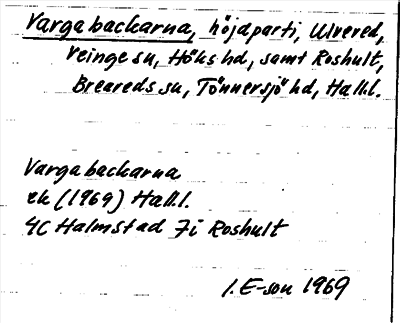 Vargabackarna, höjdparti, Ulvered,
Veinge sn, Höks hd, samt Roshult,
Breareds sn, Tönnersjö hd, Hall.
Vargabackarna
ek (1969) Hall.
4C Halmstad 7i Roshult
I.E-son 1969